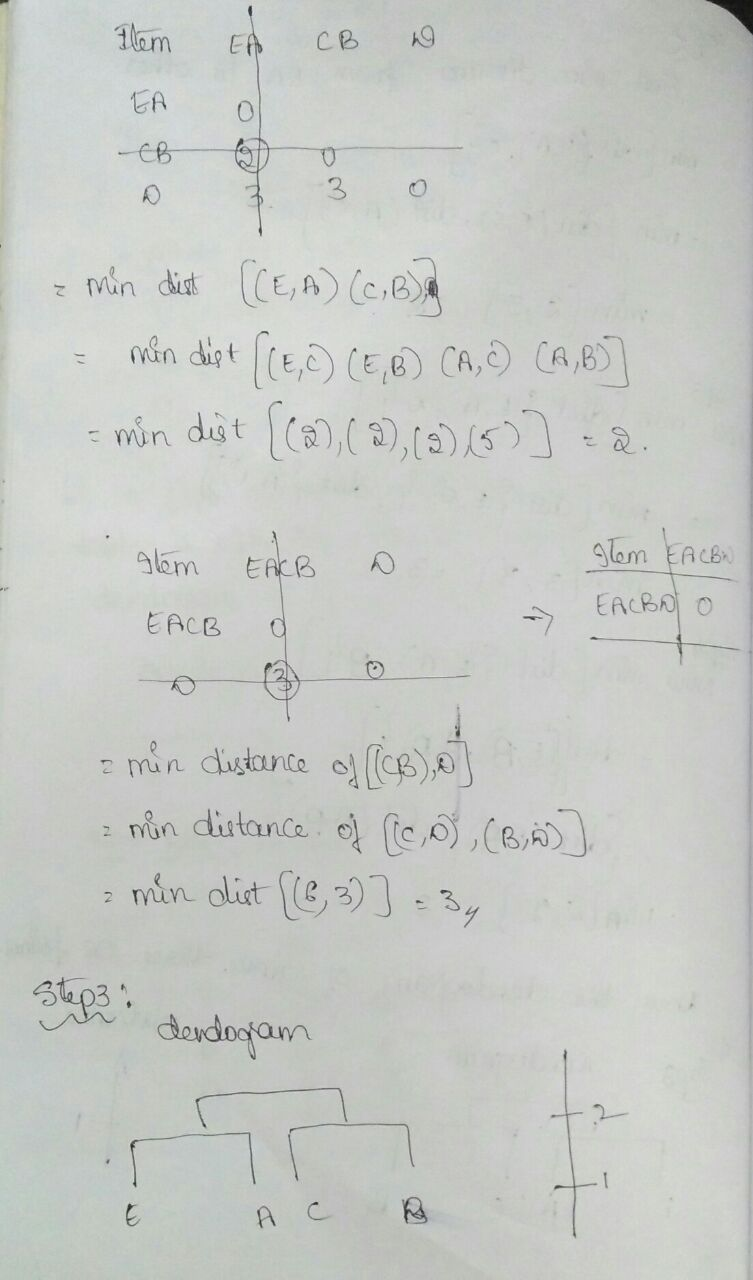 Item EA CB D
EA 0
CB 2 0
D 3 3 0
= min dist [(E,A) (C,B)]
= min dist [(E,C) (E,B) (A,C) (A,B)]
= min dist [(2),(2),(2),(5)] = 2.
Item EACB D
EACB 0
D 3 0
→
Item EACBD
EACBD 0
= min distance of [(CB),D]
= min distance of [(C,D),(B,D)]
= min dist [(6,3)] = 3
Step3:
dendogam
2
1
E A C B